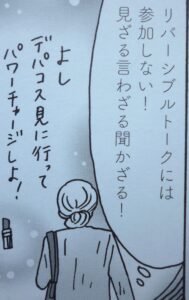 リバーシブルトークには
参加しない！
見ざる言わざる聞かざる！
よし
デパコス見に行って
パワーチャージしよ！